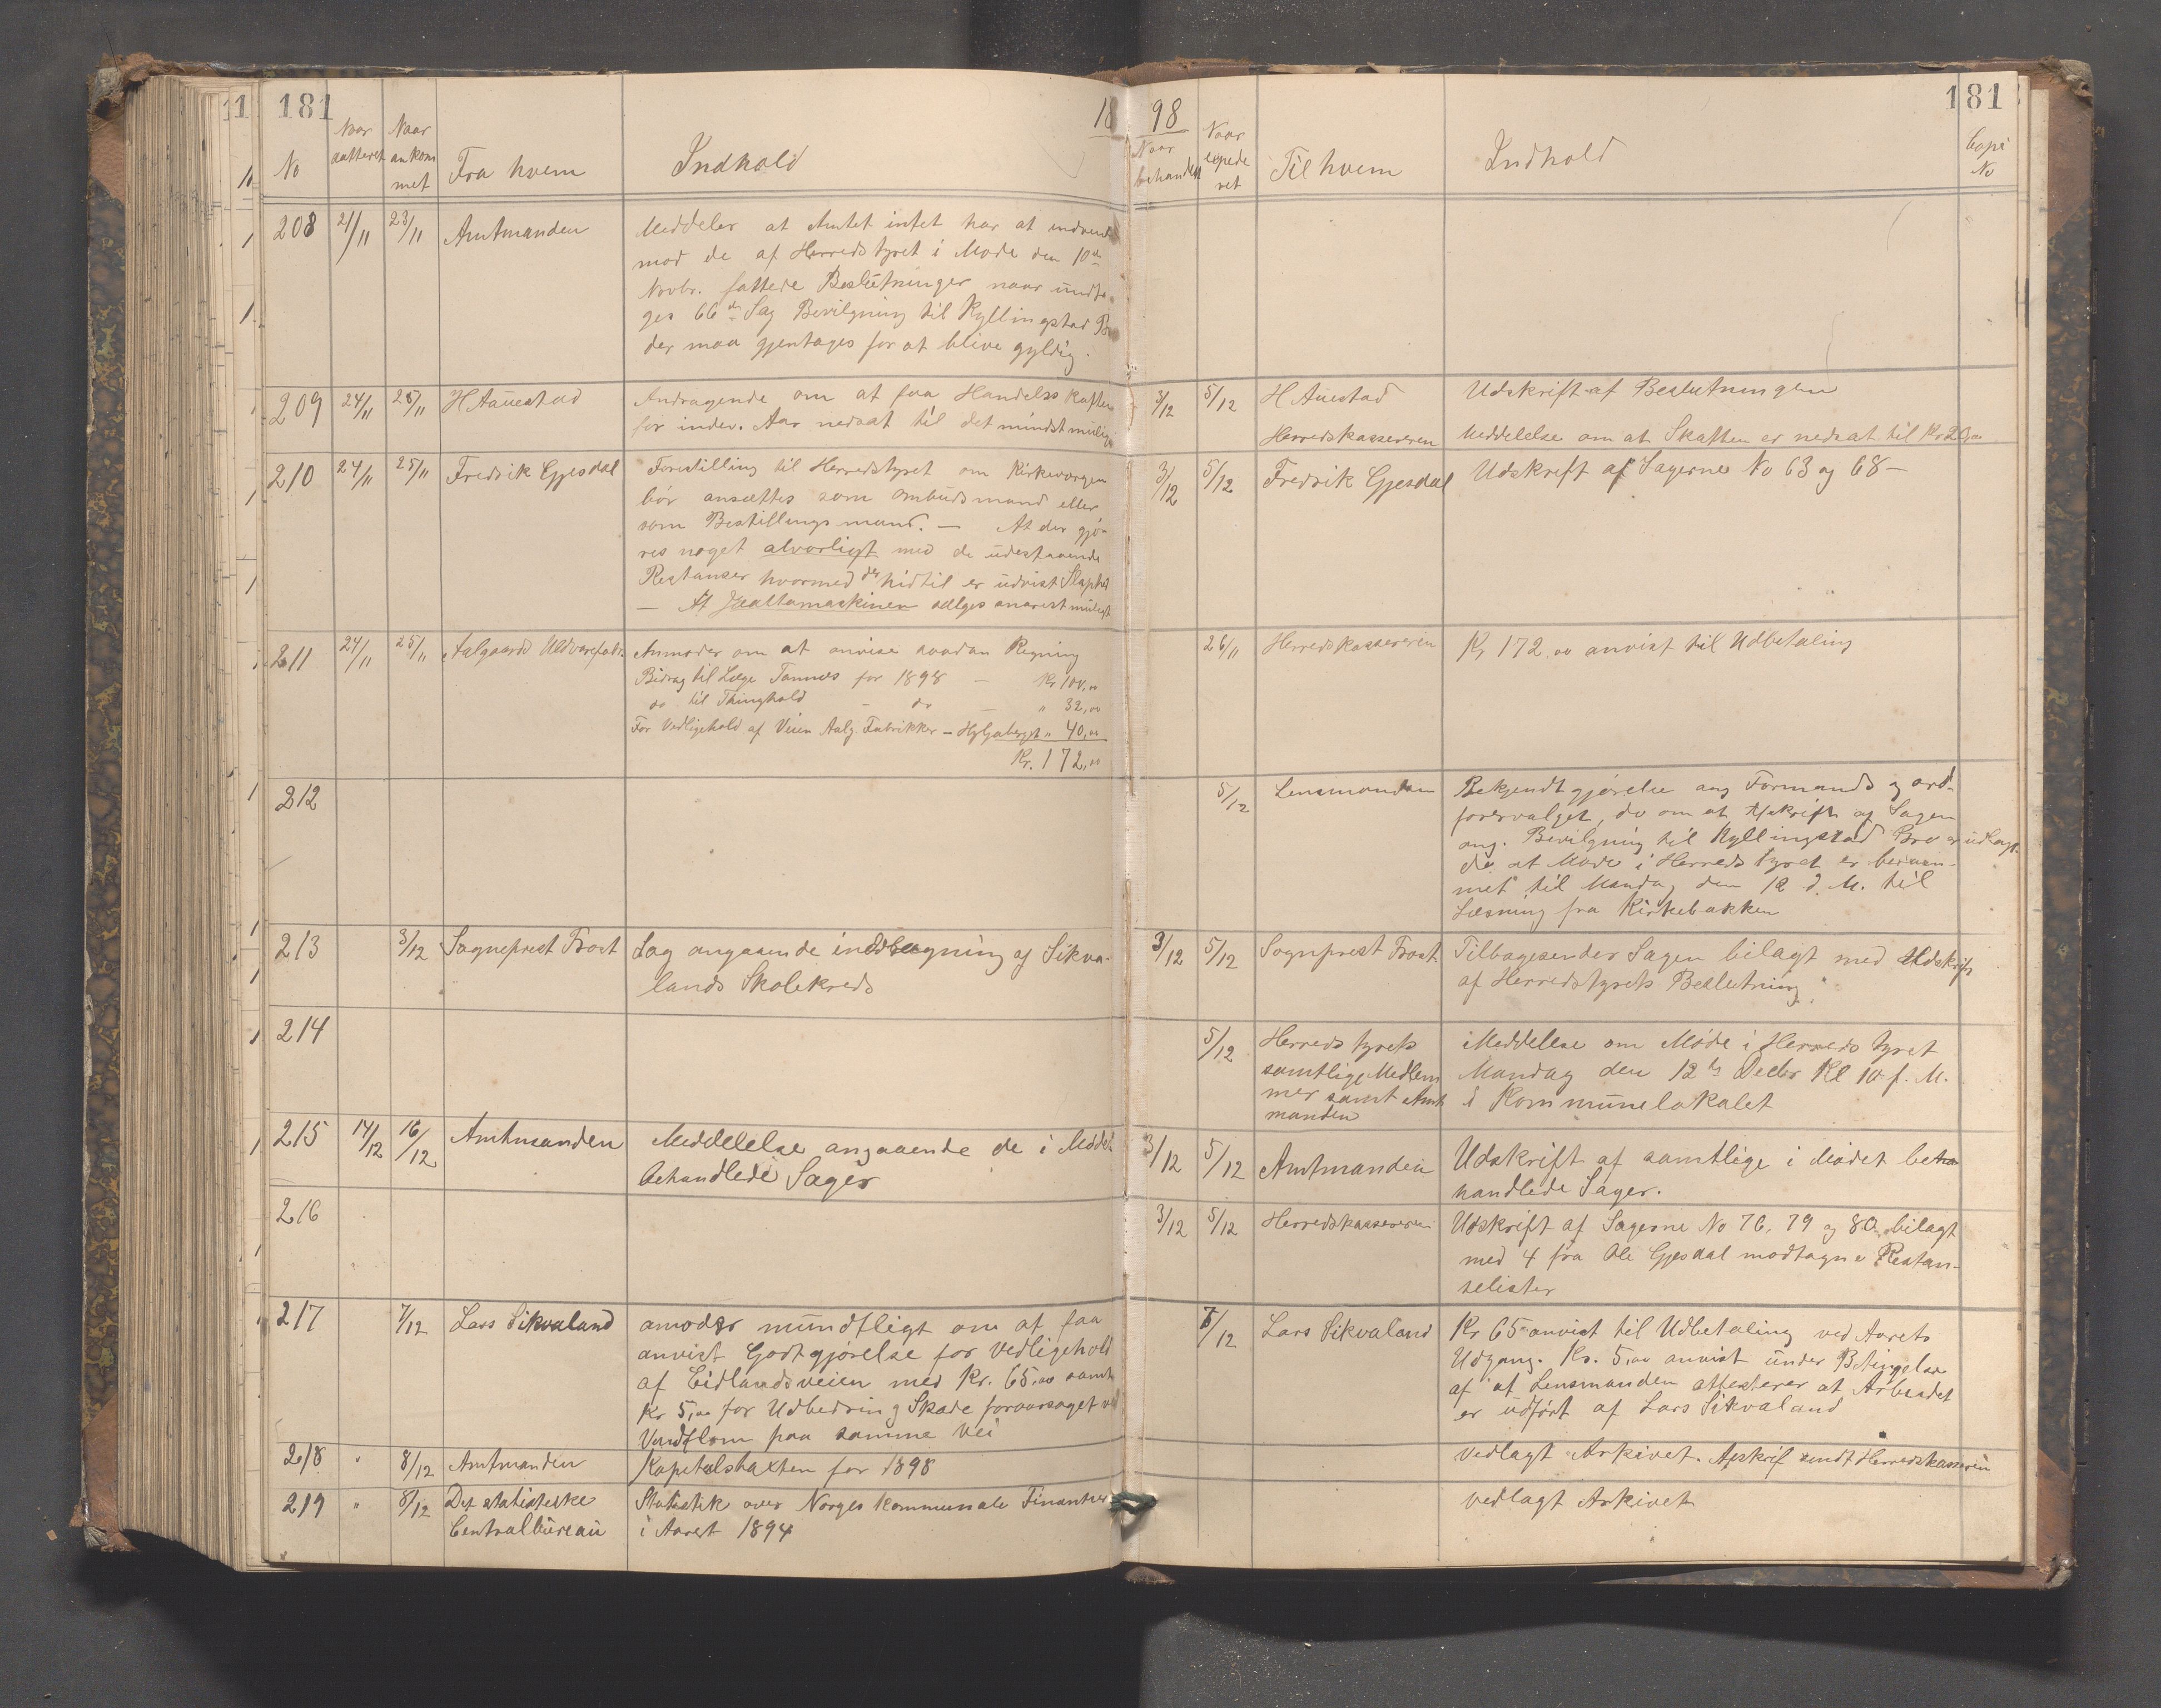 181
18 98
181
No
Naar datteret
Naar ankommet
Fra hvem
Indhold
Naar behandlet
Naar expederet
Til hvem
Indhold
Copi No
208 21/11 23/11 Amtmanden
Meddeler at Amtet intet har at indvende
mod de af Herredstyret i Møde den 10de
Novbr. fattede Beslutninger naar undta-
ges 66de Sag Bevilgning til Kyllingstad Bro
der maa gjentages for at blive gyldig.
209 24/11 25/11 H Auestad
Andragende om at faa Handelsskatten
for indev. Aar nedsat til det mindst mulige
3/12 5/12 H Auestad Udskrift af Beslutningen
Herredskassereren Meddelelse om at Skatten er nedsat til Kr
210 24/11 25/11 Fredrik Gjesdal
Forestilling til Herredstyret om Kirkevergen
bør ansættes som Ombudsmand eller
som Bestillingsmand. — At der gjø-
res noget alvorligt med de udestaaende
Restanser hvormed der hidtil er udvist Slaphed
— At maskinen sælges snarest muligt
3/12 5/12 Fredrik Gjesdal Udskrift af Sagerne No 63 og 68 —
211 24/11 25/11 Aalgaards Uldvarefabr.
Anmoder om at anvise saadan Regning
Bidrag til Læge Tannæs for 1898 — Kr 100,00
do til Thinghold — do — " 32,00
For Vedligehold af Veien Aalg. Fabrikker — " 40,00
Kr. 172,00
26/11 Herredskassereren Kr 172.00 anvist til Udbetaling
212
5/12 Lensmanden Bekjendtgjørelse ang Formands og ord-
førervalget, do om at Afskrift af Sagen
ang. Bevilgning til Kyllingstad Bro er udlagt.
do at Møde i Herredstyret er beram-
met til Mandag den 12 d. M. til
Læsning fra Kirkebakken
213 3/12 Sogneprest Frost
Sag angaaende inddragning af Sikva-
lands Skolekreds
3/12 5/12 Sognprest Frost Tilbagesender Sagen bilagt med Udskrift
af Herredstyrets Beslutning.
214
5/12 Herredstyrets Meddelelse om Møde i Herredstyret
samtlige Medlem Mandag den 12te Decbr Kl 10 f. M.
mer samt Amt i Kommunelokalet
manden
215 14/12 16/12 Amtmanden
Meddelelse angaaende de i Mødet
behandlede Sager
3/12 5/12 Amtmanden Udskrift af samtlige i Mødet be
handlede Sager.
216
3/12 5/12 Herredskassereren Udskrift af Sagerne No 76, 79 og 80 bilagt
med 4 fra Ole Gjesdal modtagne Restan-
selister
217 7/12 Lars Sikvaland
amoder mundtligt om at faa
anvist Godtgjørelse for Vedligehold
af Eidlandsveien med Kr. 65.00 samt
Kr 5,00 for Udbedring Skade foraarsaget ved
Vandflom paa samme Vei
7/12 Lars Sikvaland Kr 65 anvist til Udbetaling ved Aarets
Udgang. Kr. 5,00 anvist under Betingelse
af at Lensmanden attesterer at Arbeidet
er udført af Lars Sikvaland
218 " 8/12 Amtmanden
Kapitelstaxten for 1898
Vedlagt Arkivet. Afskrift sendt Herredskassereren
219 " 8/12 Det statistiske
Centralbureau
Statistik over Norges kommunale Finantser
i Aaret 1894
vedlagt Arkivet